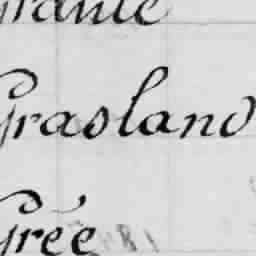 Grante
Grasland
Grée